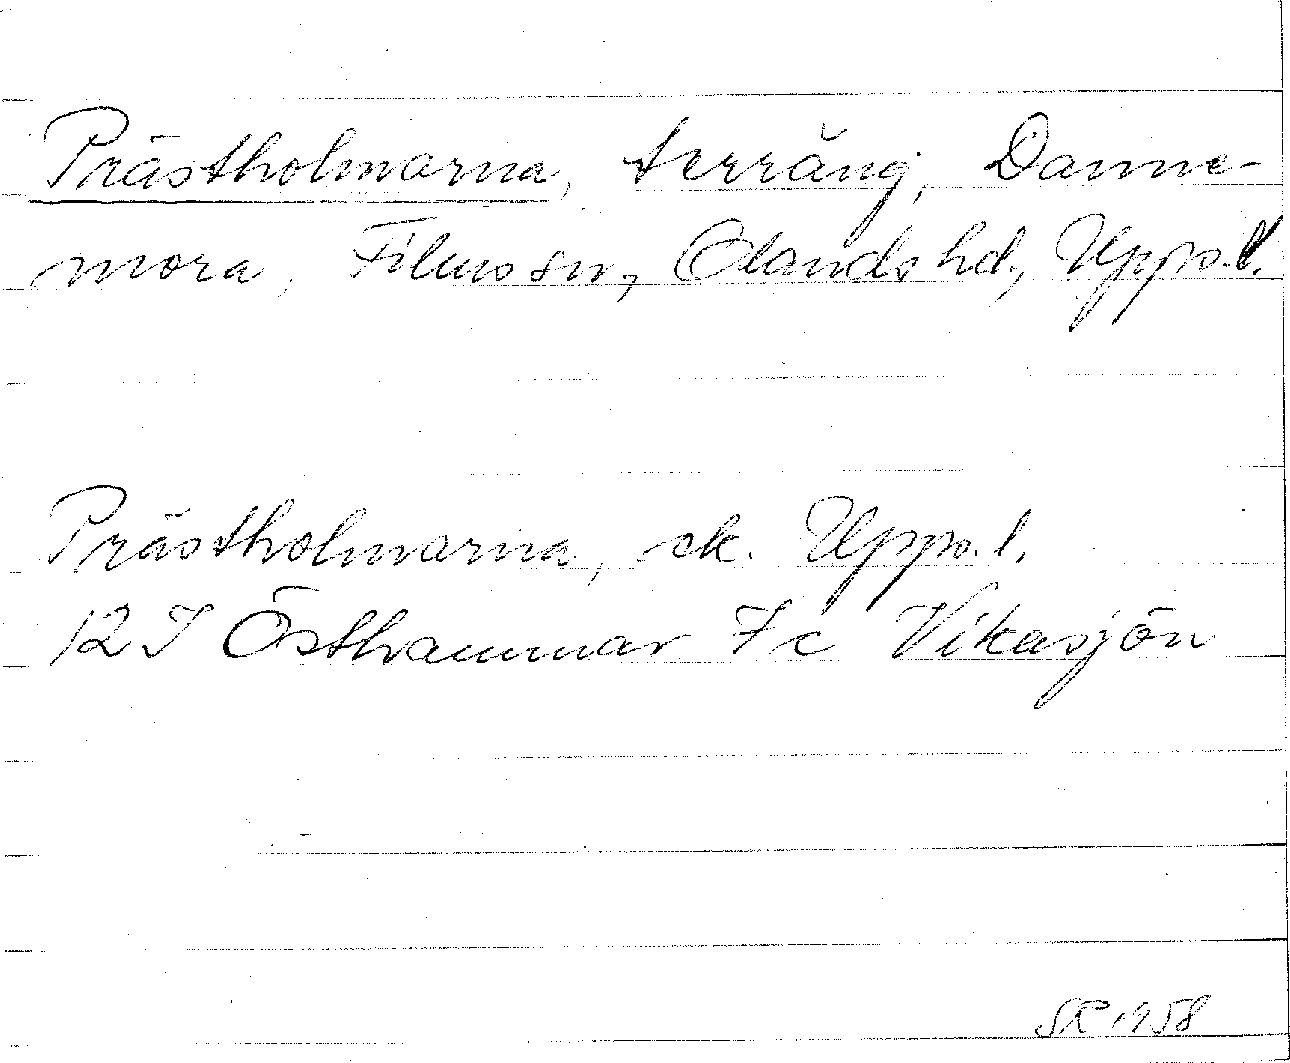 Prästholmarna, terräng, Danne-
mora, Films sn, Olands hd, Upps.l.
Prästholmarna, ek. Upps.l.
12 I Östhammar 7 c Vikasjön
SR 1958